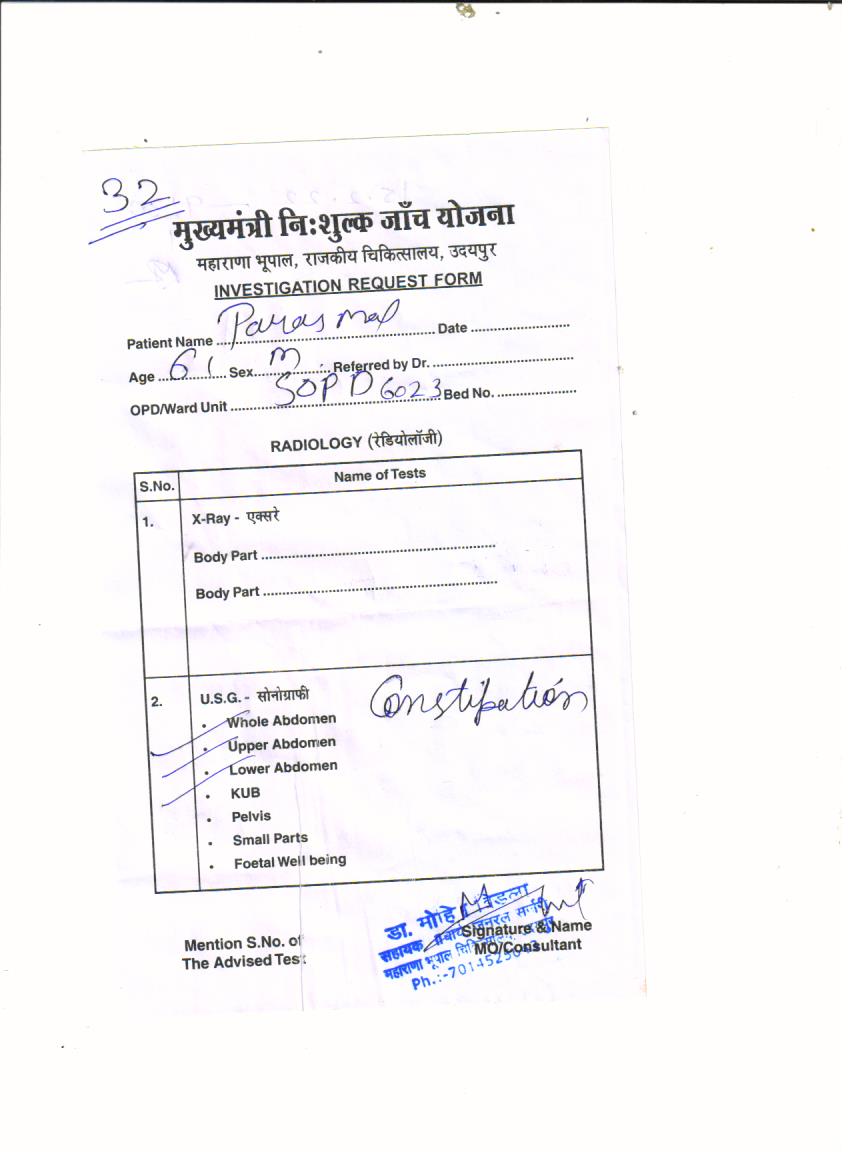 32
मुख्यमंत्री नि:शुल्क जाँच योजना
महाराणा भूपाल, राजकीय चिकित्सालय, उदयपुर
INVESTIGATION REQUEST FORM
Patient Name Paras mal Date
Age 61 Sex m Referred by Dr.
OPD/Ward Unit SOPD 6023 Bed No.
RADIOLOGY (रेडियोलॉजी)
S.No. Name of Tests
1. X-Ray - एक्सरे
Body Part
Body Part
2. U.S.G. - सोनोग्राफी Constipation
Whole Abdomen
Upper Abdomen
Lower Abdomen
KUB
Pelvis
Small Parts
Foetal Well being
डा. मोहि
सहायक आचार्य जनरल सर्जरी
महाराणा भूपाल
Ph.:-7014525
Mention S.No. of Signature & Name
The Advised Test MO/Consultant